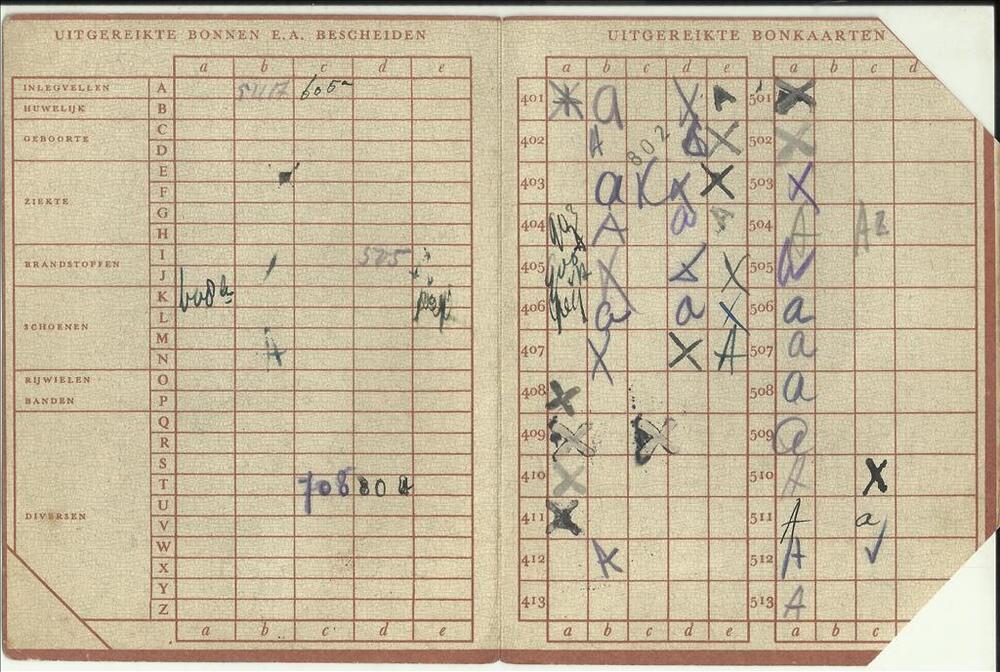 UITGEREIKTE BONNEN E.A. BESCHEIDEN
a b c d e
INLEGVELLEN A
HUWELIJK B
C
GEBOORTE
D
E
F
ZIEKTE
G
H
I 525
BRANDSTOFFEN
J
K 608a
L
SCHOENEN
M A
N
RIJWIELEN O
BANDEN P
Q
R
S
T 708 80a
U
DIVERSEN
V
W
X
Y
Z
a b c d e
UITGEREIKTE BONKAARTEN
a b c d e a b c d
401 a X A 501 X
402 A 802 X 502 X
403 a X X 503 X
404 A a A 504 A
405 X X X 505
406 a a X 506 a
407 X X A 507 a
408 X 508 a
409 X X 509 a
410 X 510 A X
411 X 511 A a
412 A 512 A
413 513 A
a b c d e a b c